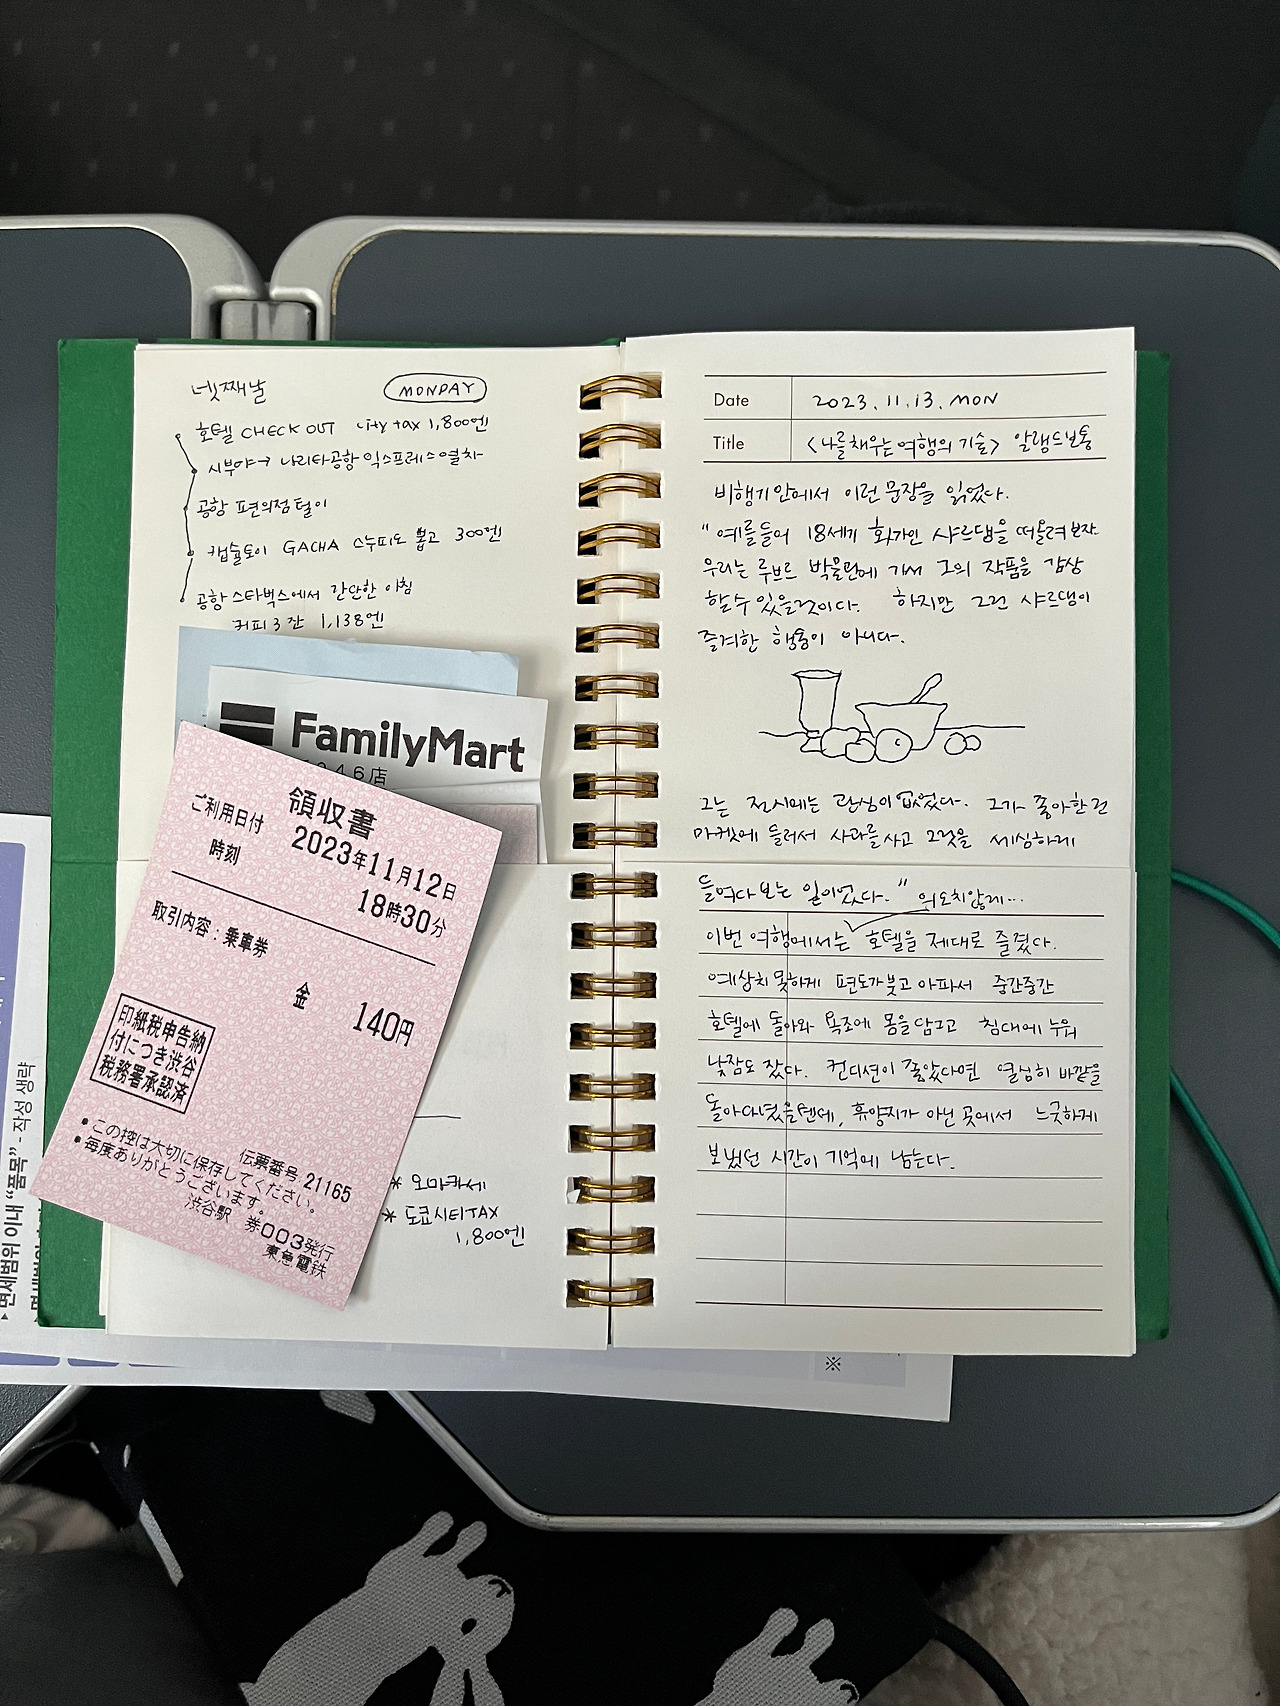 넷째날 MONDAY
호텔 CHECK OUT city tax 1,800엔
시부야→ 나리타공항 익스프레스 열차
공항 편의점 털이
캡슐토이 GACHA 스누피도 뽑고 300엔
공항 스타벅스에서 간단한 아침
커피 3잔 1,138엔
FamilyMart
246店
領収書
ご利用日付 2023年11月12日
時刻 18時30分
取引内容:乗車券
金 140円
印紙税申告納
付につき渋谷
税務署承認済
伝票番号 21165
●この控は大切に保存してください。
●毎度ありがとうございます。
渋谷駅 券003発行
東急電鉄
* 오마카세
* 도쿄시티TAX
1,800엔
Date 2023.11.13. MON
Title <나를 채우는 여행의 기술> 알랭드보통
비행기 안에서 이런 문장을 읽었다.
"예를들어 18세기 화가인 샤르댕을 떠올려보자.
우리는 루브르 박물관에 가서 그의 작품을 감상
할 수 있을것이다. 하지만 그건 샤르댕이
즐겨한 행동이 아니다.
그는 전시에는 관심이 없었다. 그가 좋아한건
마켓에 들러서 사과를 사고 그것을 세심하게
들여다 보는 일이었다." 의도치않게...
이번 여행에서는 호텔을 제대로 즐겼다.
예상치 못하게 편도가 붓고 아파서 중간중간
호텔에 돌아와 욕조에 몸을 담그고 침대에 누워
낮잠도 잤다. 컨디션이 좋았다면 열심히 바깥을
돌아다녔을텐데, 휴양지가 아닌 곳에서 느긋하게
보냈던 시간이 기억에 남는다.
▸면세범위 이내 "품목" - 작성 생략
※